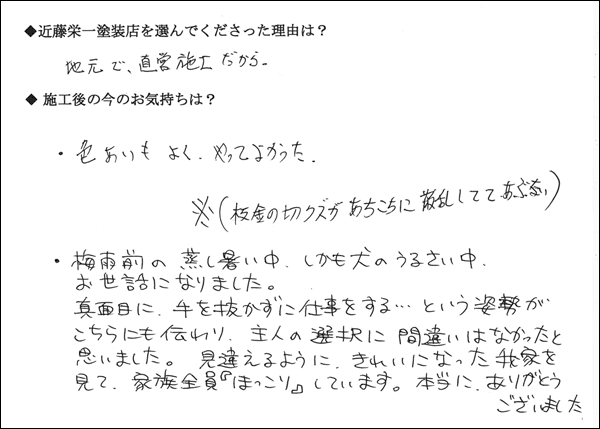 ◆近藤栄一塗装店を選んでくださった理由は？
地元で、直営施工だから。
◆ 施工後の今のお気持ちは？
・色あいもよく、やってよかった。
※(板金の切クズがあちこちに散乱しててあぶない)
・梅雨前の蒸し暑い中、しかも犬のうるさい中、
お世話になりました。
真面目に、手を抜かずに仕事をする…という姿勢が
こちらにも伝わり、主人の選択に間違いはなかったと
思いました。見違えるように、きれいになった我家を
見て、家族全員『ほっこり』しています。本当に、ありがとう
ございました